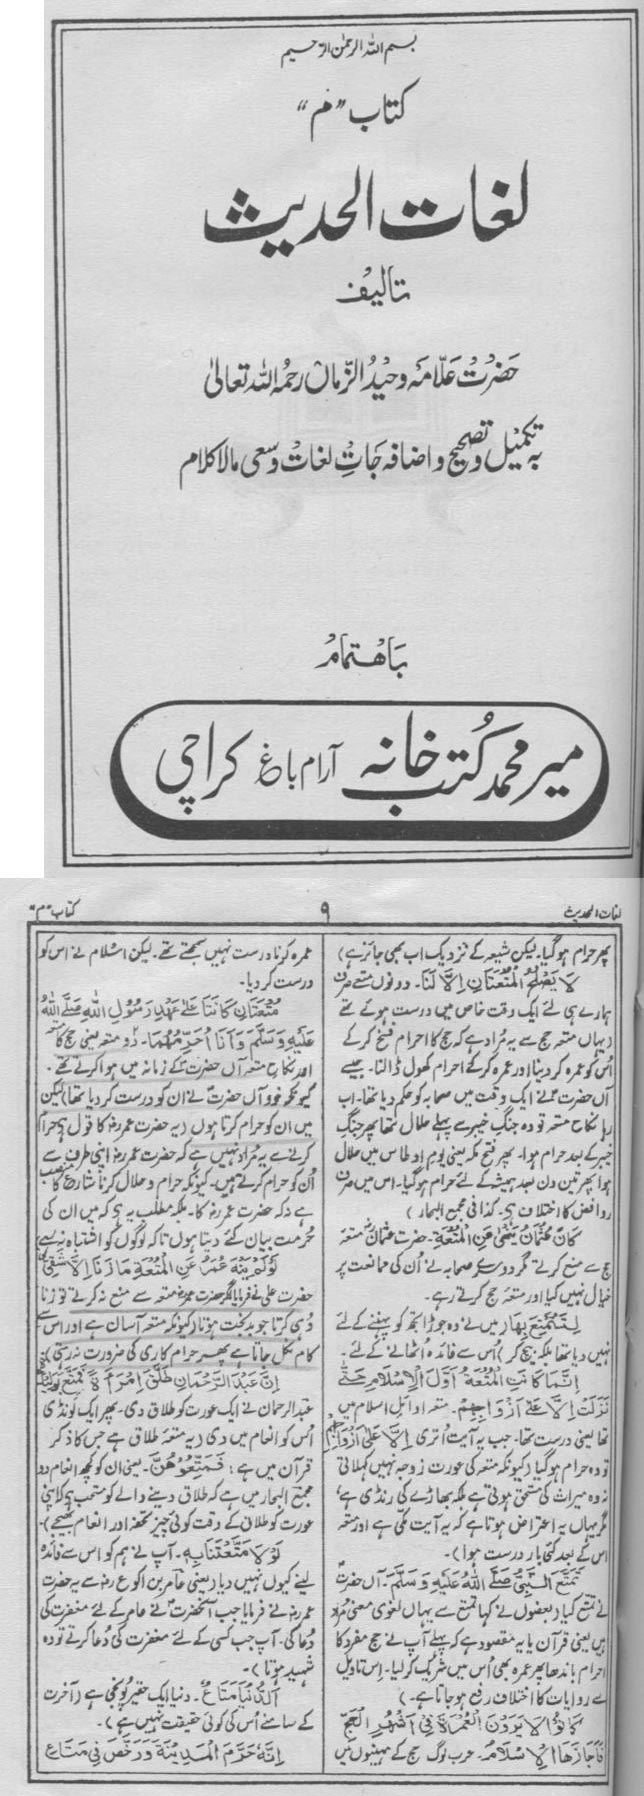 بسم اللہ الرحمٰن الرّحیم
کتاب ”م“
لغات الحدیث
تالیف
حضرت علّامہ وحیدُ الزّمان رحمۃ اللہ تعالیٰ
بہ تکمیل و تصحیح و اضافہ جاتِ لغات و سعی مالا کلام
باہتمام
میر محمد کُتب خانہ آرام باغ کراچی
لغات الحدیث
۹
کتاب ”م“
پھر حرام ہوگیا۔ لیکن شیعہ کے نزدیک اب بھی جائز ہے)
لَا یَصْلُحُ الْمُتْعَتَانِ اِلَّا لَنَا۔ دونوں متعے صرف
ہمارے ہی لئے ایک وقت خاص میں درست ہوئے تھے
(یہاں متعہ حج سے یہ مُراد ہے کہ حج کا احرام فسخ کر کے
اُس کو عمرہ کر دینا اور عمرہ کر کے احرام کھول ڈالنا۔ جیسے
آں حضرت نے ایک وقت میں صحابہ کو حکم دیا تھا۔ اب
رہا نکاح متعہ تو وہ جنگِ خیبر سے پہلے حلال تھا پھر جنگِ
خیبر کے بعد حرام ہوا۔ پھر فتح مکہ یعنی یومِ اوطاس میں حلال
ہوا پھر تین دن بعد ہمیشہ کے لئے حرام ہوگیا۔ اس میں صرف
روافض کا اختلاف ہے۔ کذا فی مجمع البحار)
کَانَ عُثْمَانُ یَنْھٰی عَنِ الْمُتْعَۃِ۔ حضرت عثمان متعہ
حج سے منع کرتے مگر دوسرے صحابہ نے اُن کی ممانعت پر
خیال نہیں کیا اور متعہ حج کرتے رہے۔
لِتَتَمَتَّعَ بِھَا میں نے وہ جوڑا تجھ کو پہننے کے لئے
نہیں دیا تھا بلکہ بیچ کر اُس سے فائدہ اُٹھانے کے لئے۔
اِنَّمَا کَانَتِ الْمُتْعَۃُ اَوَّلَ الْاِسْلَامِ حَتّٰی
نَزَلَتْ اِلَّا عَلٰی اَزْوَاجِھِمْ۔ متعہ اوائل اسلام میں
تھا یعنی درست تھا۔ جب یہ آیت اُتری اِلَّا عَلٰی اَزْوَاجِھِمْ
تو وہ حرام ہوگیا (کیونکہ متعہ کی عورت زوجہ نہیں کہلاتی
نہ وہ میراث کی مستحق ہوتی ہے بلکہ بھاڑے کی رنڈی ہے
مگر یہاں یہ اعتراض ہوتا ہے کہ یہ آیت مکی ہے اور متعہ
اس کے بعد کئی بار درست ہوا)۔
تَمَتَّعَ النَّبِیُّ صَلَّی اللّٰہُ عَلَیْہِ وَسَلَّمَ۔ آں حضرت
نے تمتع کیا (بعضوں نے کہا تمتع سے یہاں لغوی معنی مُراد
ہیں یعنی قرآن یا یہ مقصود ہے کہ پہلے آپ نے حج مفرد کا
احرام باندھا پھر عمرہ بھی اُس میں شریک کر لیا۔ اِس تاویل
سے روایات کا اختلاف رفع ہو جاتا ہے۔)
کَانُوْا لَا یَرَوْنَ الْعُمْرَۃَ فِیْ اَشْھُرِ الْحَجِّ
فَاَجَازَھَا الْاِسْلَامُ۔ عرب لوگ حج کے مہینوں میں
عمرہ کرنا درست نہیں سمجھتے تھے۔ لیکن اسلام نے اس کو
درست کر دیا۔
مُتْعَتَانِ کَانَتَا عَلٰی عَھْدِ رَسُوْلِ اللّٰہِ صَلَّی اللّٰہُ
عَلَیْہِ وَسَلَّمَ وَاَنَا اُحَرِّمُھُمَا۔ دو متعہ یعنی حج کا متعہ
اور نکاح متعہ آں حضرت کے زمانہ میں ہوا کرتے تھے۔
(کیونکہ خود آں حضرت نے ان کو درست کر دیا تھا) لیکن
میں ان کو حرام کرتا ہوں (یہ حضرت عمر کا قول ہے حرام
کرنے سے یہ مُراد نہیں ہے کہ حضرت عمر اپنی طرف سے
اُن کو حرام کرتے ہیں۔ کیونکہ حرام و حلال کرنا شارع کا منصب
ہے نہ کہ حضرت عمر کا۔ بلکہ مطلب یہ ہے کہ میں ان کی
حُرمت بیان کئے دیتا ہوں تاکہ لوگوں کو اشتباہ نہ رہے
لَوْ لَمْ یَنْہَ عُمَرُ عَنِ الْمُتْعَۃِ مَا زَنَا اِلَّا شَقِیٌّ
حضرت علی نے فرمایا اگر حضرت عمر متعہ سے منع نہ کرتے تو زنا
وُہی کرتا جو بدبخت ہوتا (کیونکہ متعہ آسان ہے اور اس سے
کام نکل جاتا ہے پھر حرام کاری کی ضرورت نہ رہتی)
اِنَّ عَبْدَ الرَّحْمَانِ طَلَّقَ امْرَأَۃً فَمَتَّعَ بِوَلِیْدَۃٍ
عبدالرحمان نے ایک عورت کو طلاق دی۔ پھر ایک لونڈی
اُس کو انعام میں دی (یہ متعہ طلاق ہے جس کا ذکر
قرآن میں ہے: فَمَتِّعُوْھُنَّ۔ یعنی ان کو کچھ انعام دو
مجمع البحار میں ہے کہ طلاق دینے والے کو مستحب ہے کہ اپنی
عورت کو طلاق کے وقت کوئی چیز تحفہ اور انعام بھیجے)۔
لَوْلَا مَتَّعْتَنَا بِہٖ۔ آپ نے ہم کو اس سے فائدہ
لینے کیوں نہیں دیا (یعنی عامر بن اکوع سے یہ حضرت
عمر نے فرمایا جب آنحضرت نے عامر کے لئے مغفرت کی
دُعا کی۔ آپ جب کسی کے لئے مغفرت کی دُعا کرتے تو وہ
شہید ہوتا)۔
اَلدُّنْیَا مَتَاعٌ۔ دنیا ایک حقیر پونجی ہے (آخرت
کے سامنے اُس کی کوئی حقیقت نہیں ہے)۔
اِنَّہٗ حَرَّمَ الْمَدِیْنَۃَ وَرَخَّصَ فِیْ مَتَاعِ